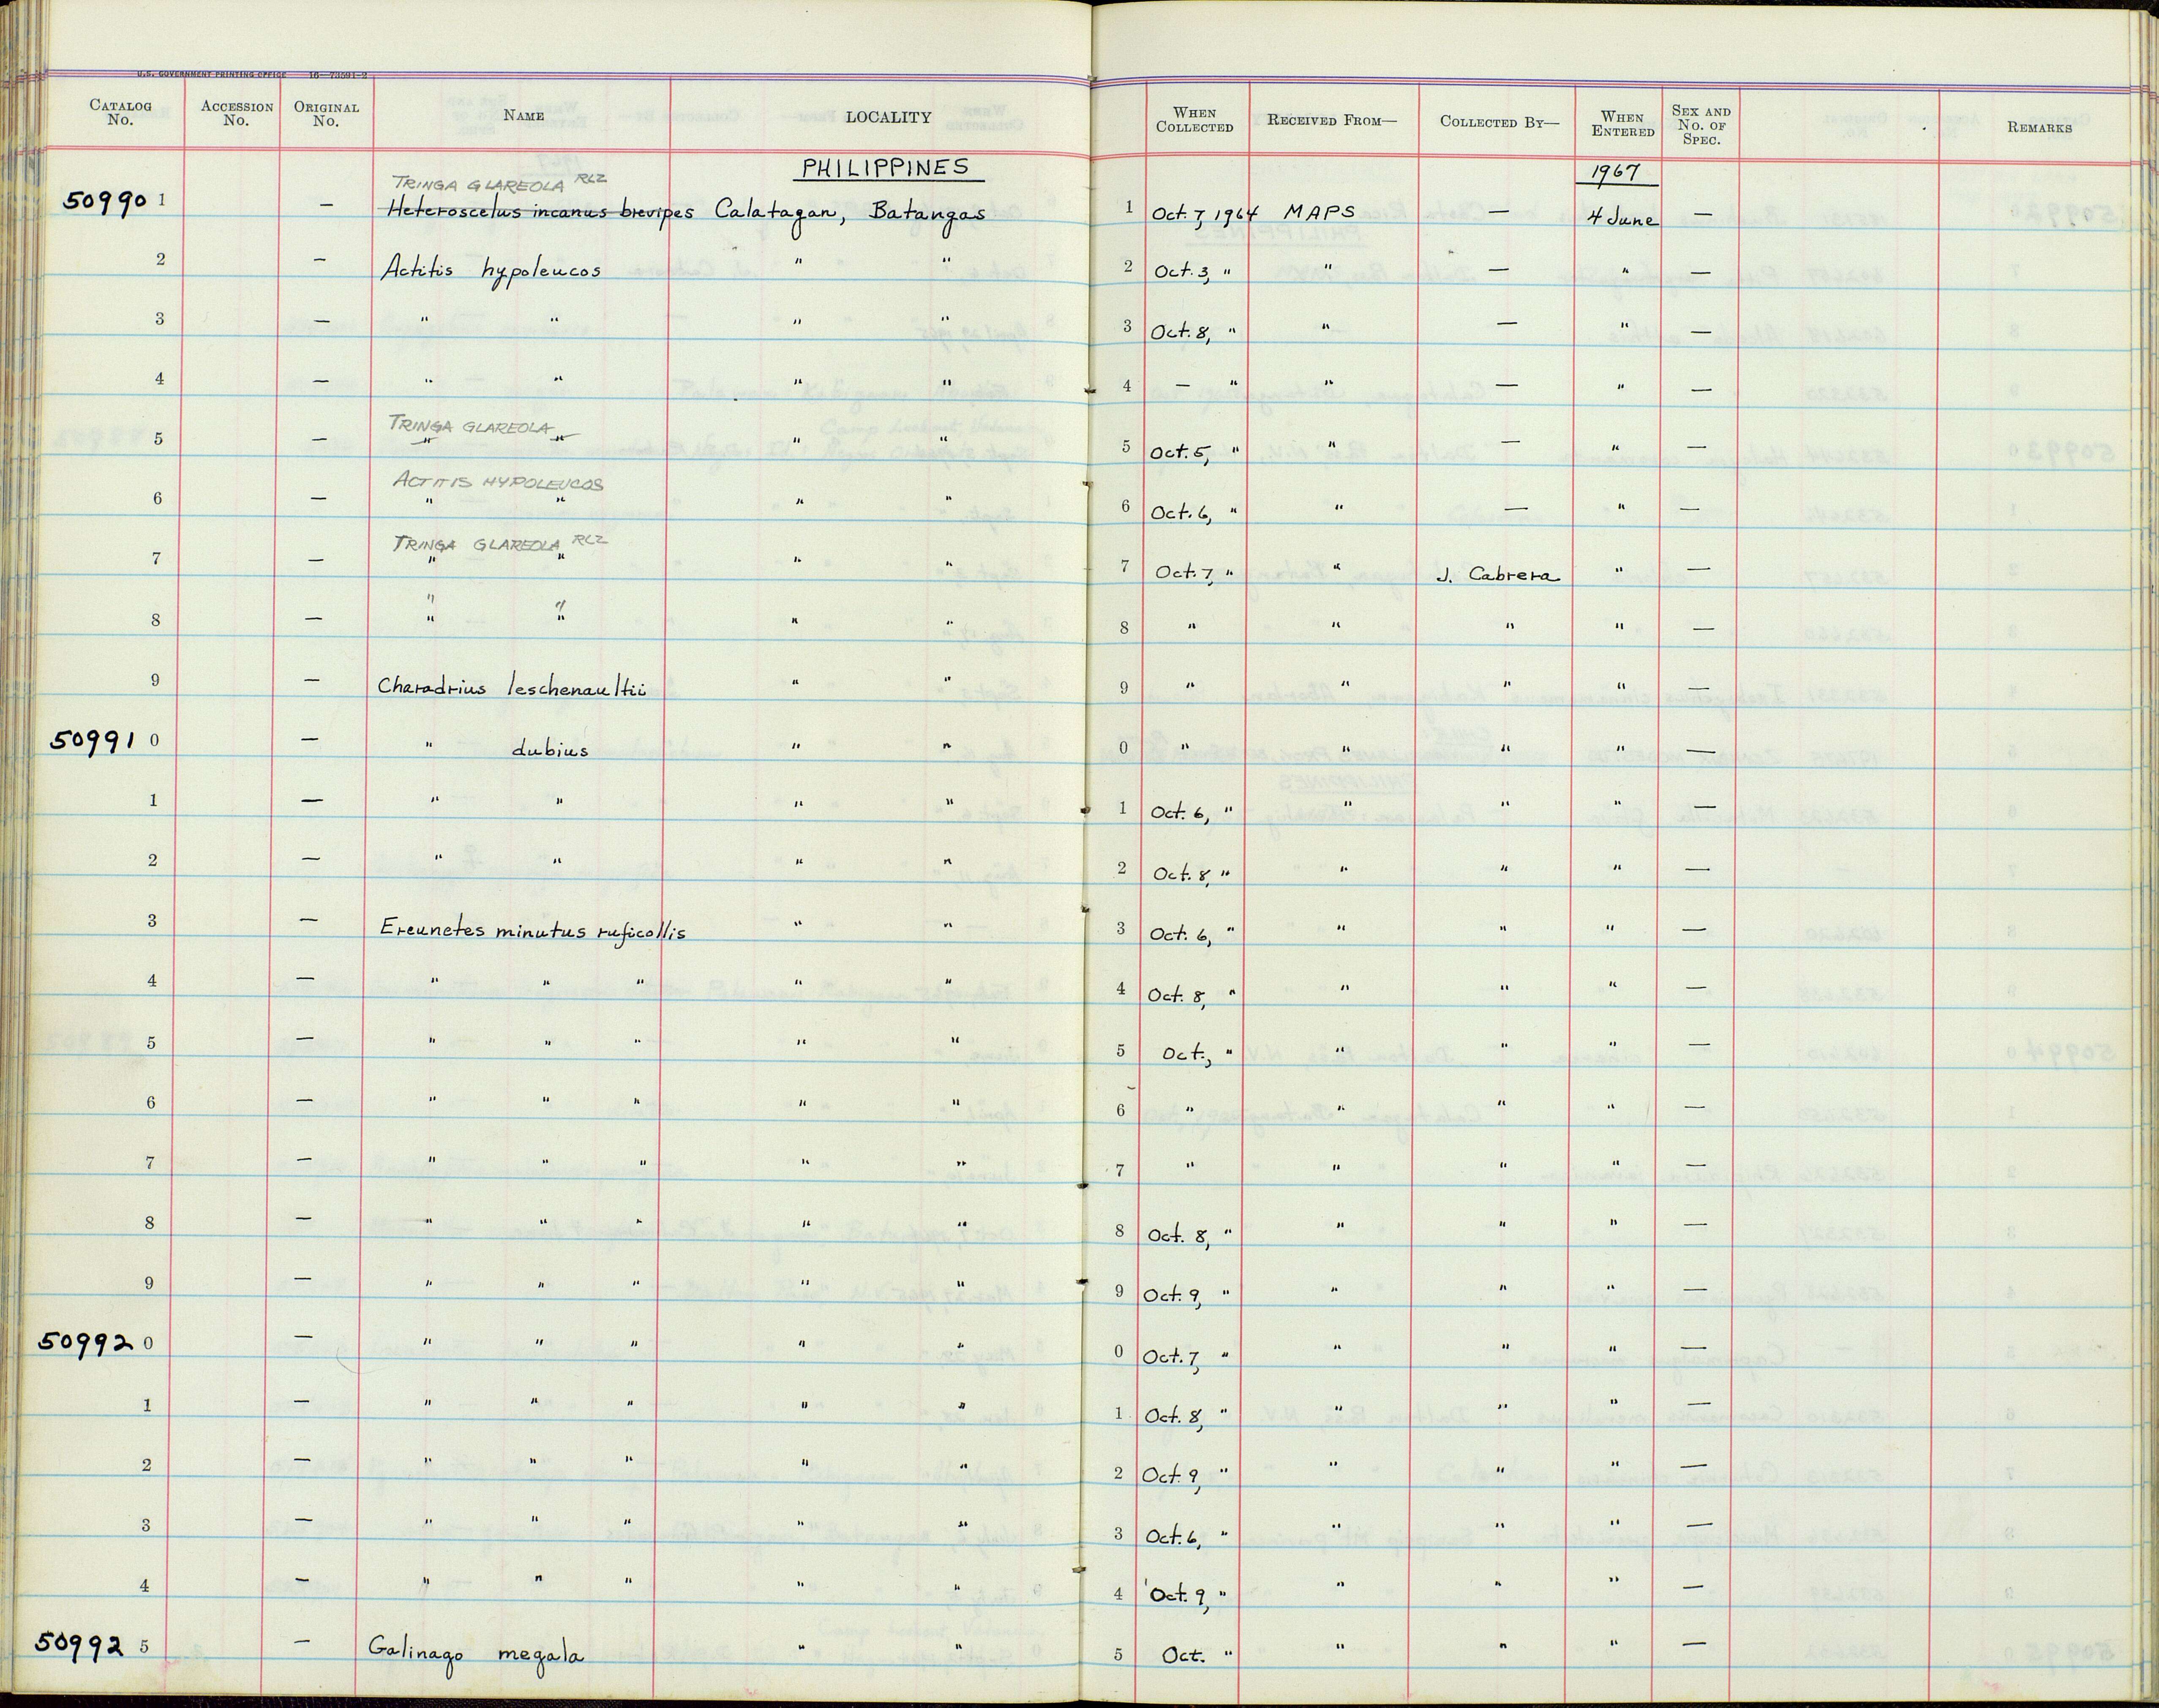 U.S. GOVERNMENT PRINTING OFFICE 16—73591-2
CATALOG No. ACCESSION No. ORIGINAL No. NAME LOCALITY WHEN COLLECTED RECEIVED FROM— COLLECTED BY— WHEN ENTERED SEX AND No. OF SPEC. REMARKS
PHILIPPINES 1967
TRINGA GLAREOLA RLZ
50990 1 — Heteroscelus incanus brevipes Calatagan, Batangas 1 Oct. 7, 1964 MAPS — 4 June —
2 — Actitis hypoleucos " " 2 Oct. 3, " " — " —
3 — " " " " 3 Oct. 8, " " — " —
4 — " " " " 4 — " " — " —
TRINGA GLAREOLA
5 — " " " " 5 Oct. 5, " " — " —
ACTITIS HYPOLEUCOS
6 — " " " " 6 Oct. 6, " " — " —
TRINGA GLAREOLA RLZ
7 — " " " " 7 Oct. 7, " " J. Cabrera " —
" "
8 — " " " " 8 " " " " —
9 — Charadrius leschenaultii " " 9 " " " " —
50991 0 — " dubius " " 0 " " " " —
1 — " " " " 1 Oct. 6, " " " " —
2 — " " " " 2 Oct. 8, " " " " —
3 — Ereunetes minutus ruficollis " " 3 Oct. 6, " " " " —
4 — " " " " " 4 Oct. 8, " " " " —
5 — " " " " " 5 Oct., " " " " —
6 — " " " " " 6 " " " " —
7 — " " " " " 7 " " " " —
8 — " " " " " 8 Oct. 8, " " " " —
9 — " " " " " 9 Oct. 9, " " " " —
50992 0 — " " " " " 0 Oct. 7, " " " " —
1 — " " " " " 1 Oct. 8, " " " " —
2 — " " " " " 2 Oct. 9, " " " " —
3 — " " " " " 3 Oct. 6, " " " " —
4 — " " " " " 4 Oct. 9, " " " " —
50992 5 — Galinago megala " " 5 Oct. " " " " —